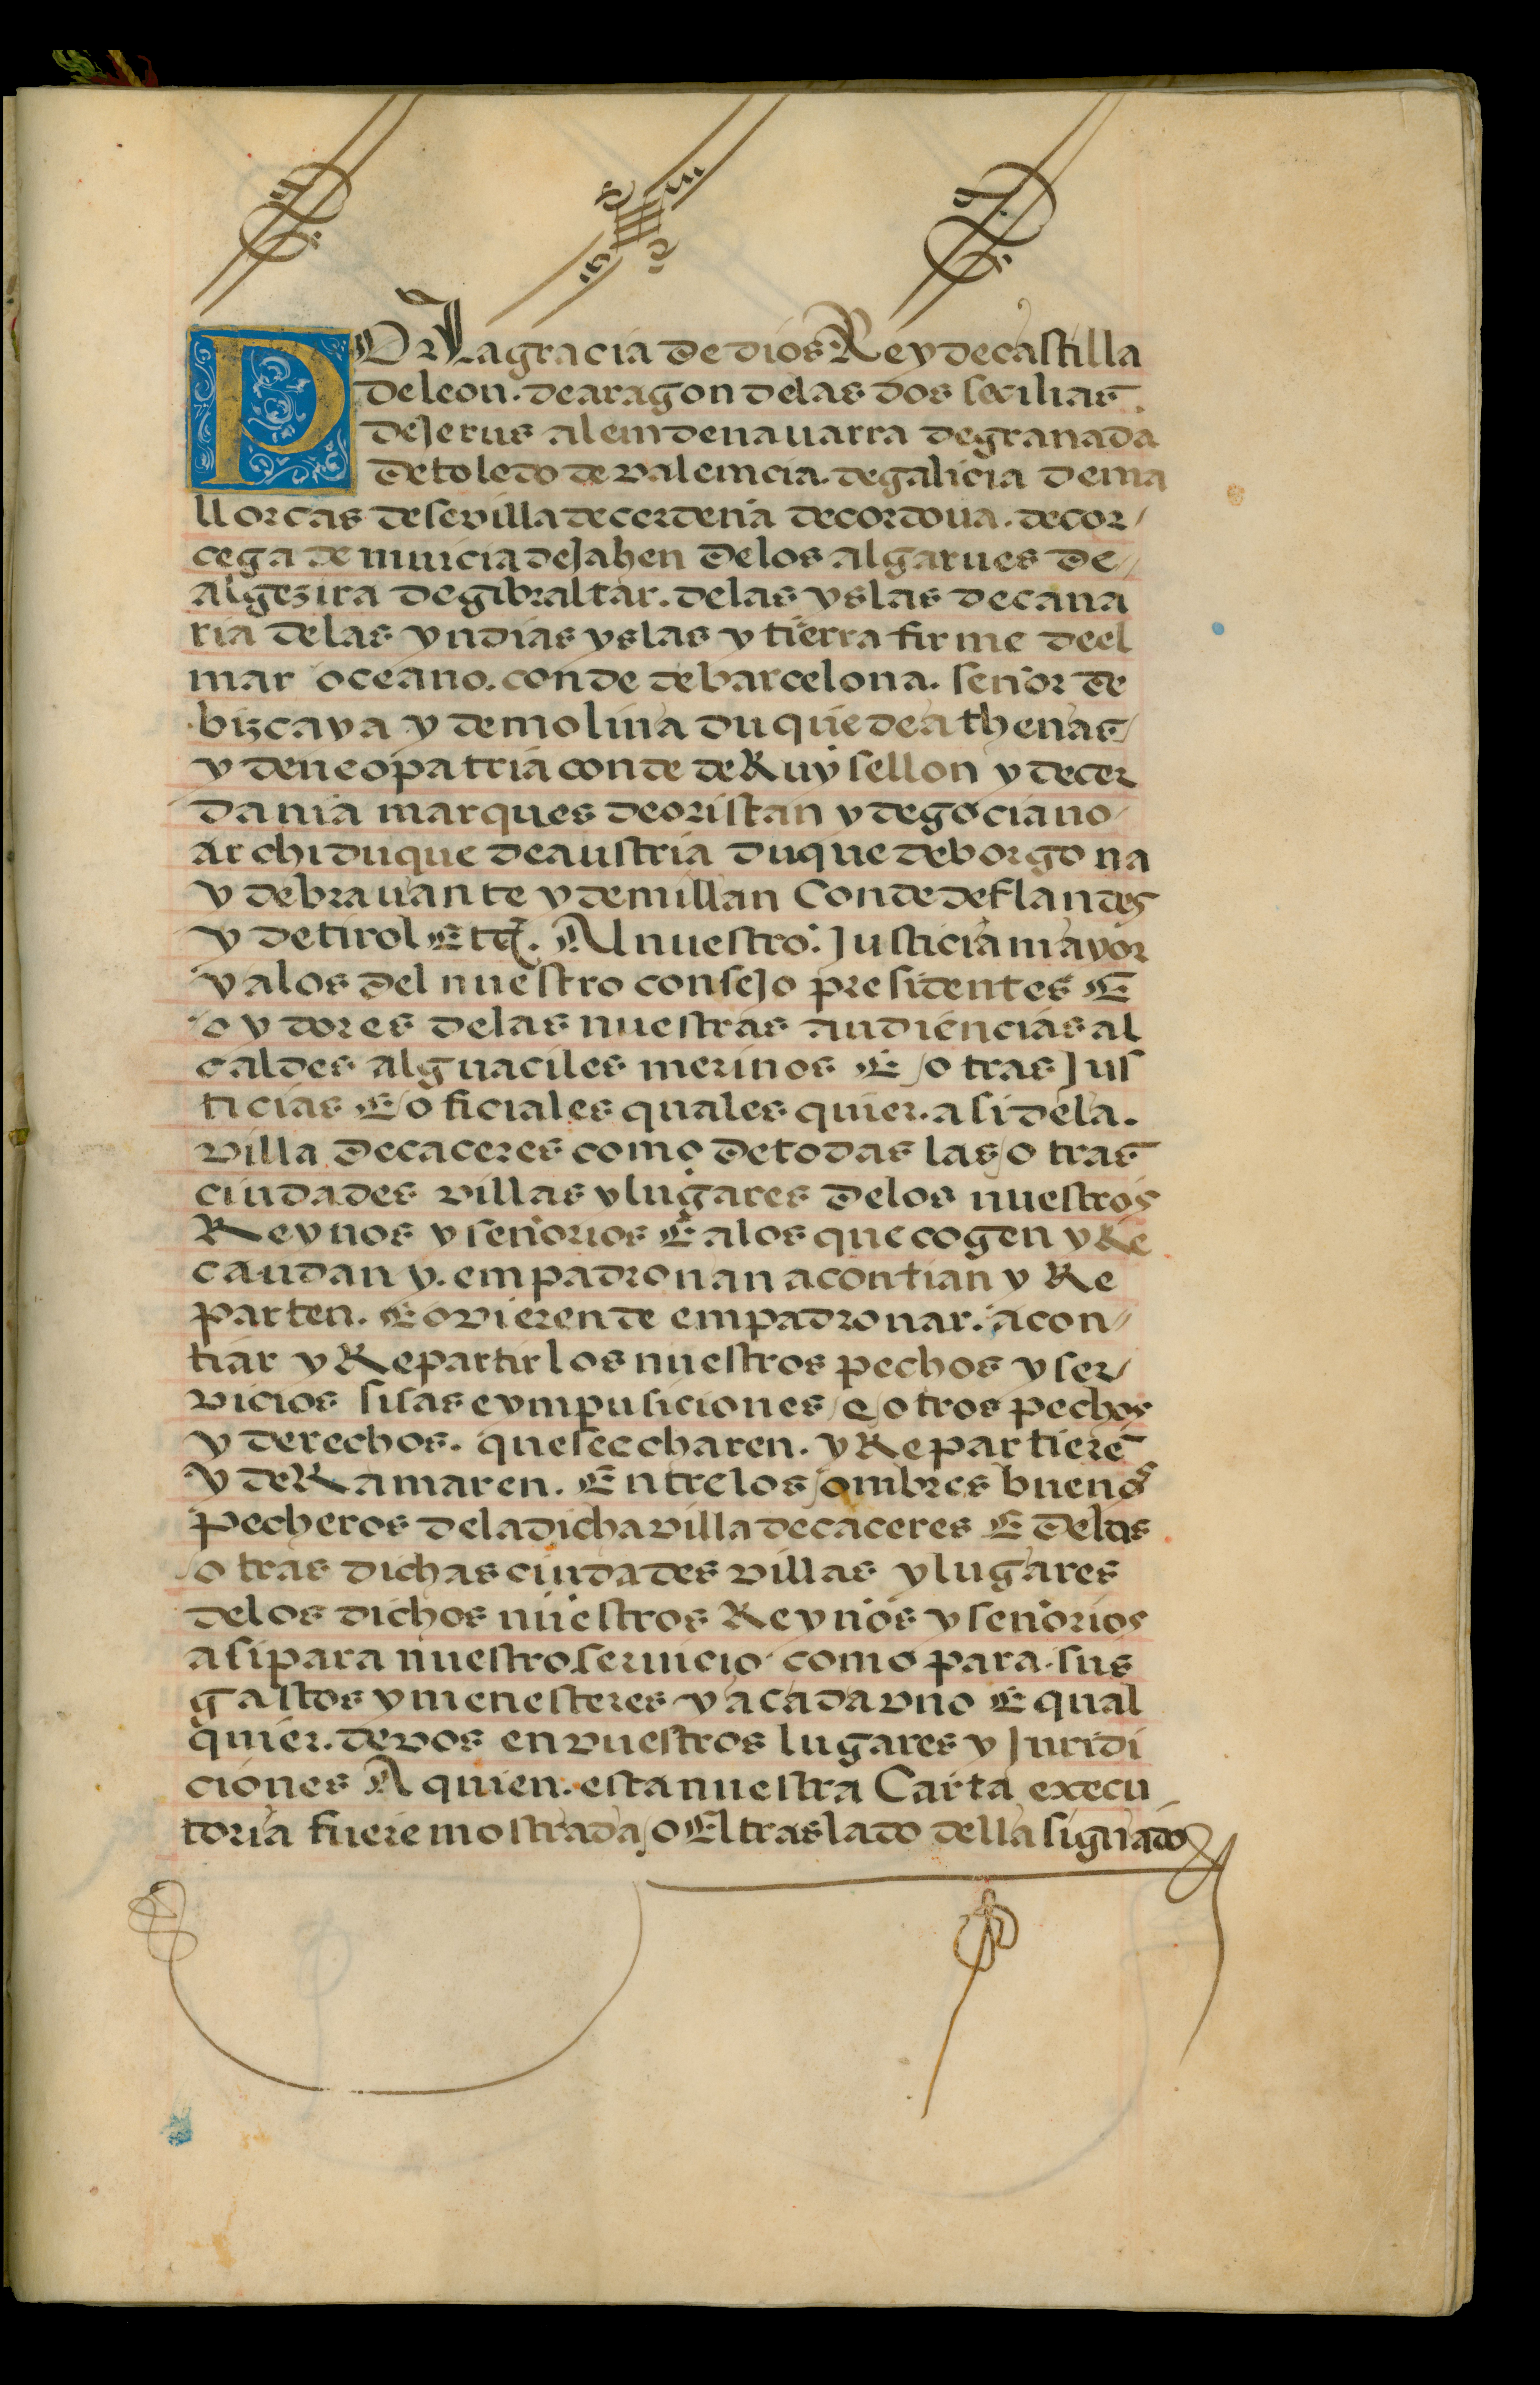 POR la gracia de dios Rey de castilla
de leon. de aragon de las dos secilias.
de Jerusalem de nauarra de granada
de toledo de valemcia. de galicia de ma
llorcas de sevilla de cerdeña de cordoua. de cor/
cega de murcia de Jahen de los algarues de/
algezira de gibraltar. de las yslas de cana
ria de las yndias yslas y tierra firme de el
mar oceano. conde de barcelona. señor de
bizcaya y de molina duque de athenas/
y de neopatria conde de Ruysellon y de cer
dania marques de oristan y de gociano/
archiduque de austria duque de borgona
y de brauante y de millan Conde de flandes
y de tirol Etc. Al nuestro: Justicia mayor
y a los del nuestro consejo presidentes E
oydores de las nuestras audiencias al
caldes alguaciles merinos E otras Jus
ticias E oficiales quales quier. asi de la.
villa de caceres como de todas las otras
ciudades villas y lugares de los nuestros
Reynos y señorios E a los que cogen y Re
caudan y. empadronan acontian y Re
parten. E ovieren de empadronar. acon/
tiar y Repartir los nuestros pechos y ser/
vicios sisas e ympusiciones e otros pechos
y derechos. que se echaren. y Repartierē
y deRamaren. Entre los ombres buenos
pecheros de la dicha villa de caceres E de las
otras dichas ciudades villas y lugares
de los dichos nuestros Reynos y señorios
asi para nuestro seruicio como para sus
gastos y menesteres y a cada vno E qual
quier. de vos en vuestros lugares y Juridi
ciones A quien. esta nuestra Carta execu
toria fuere mostrada o El traslado della signado